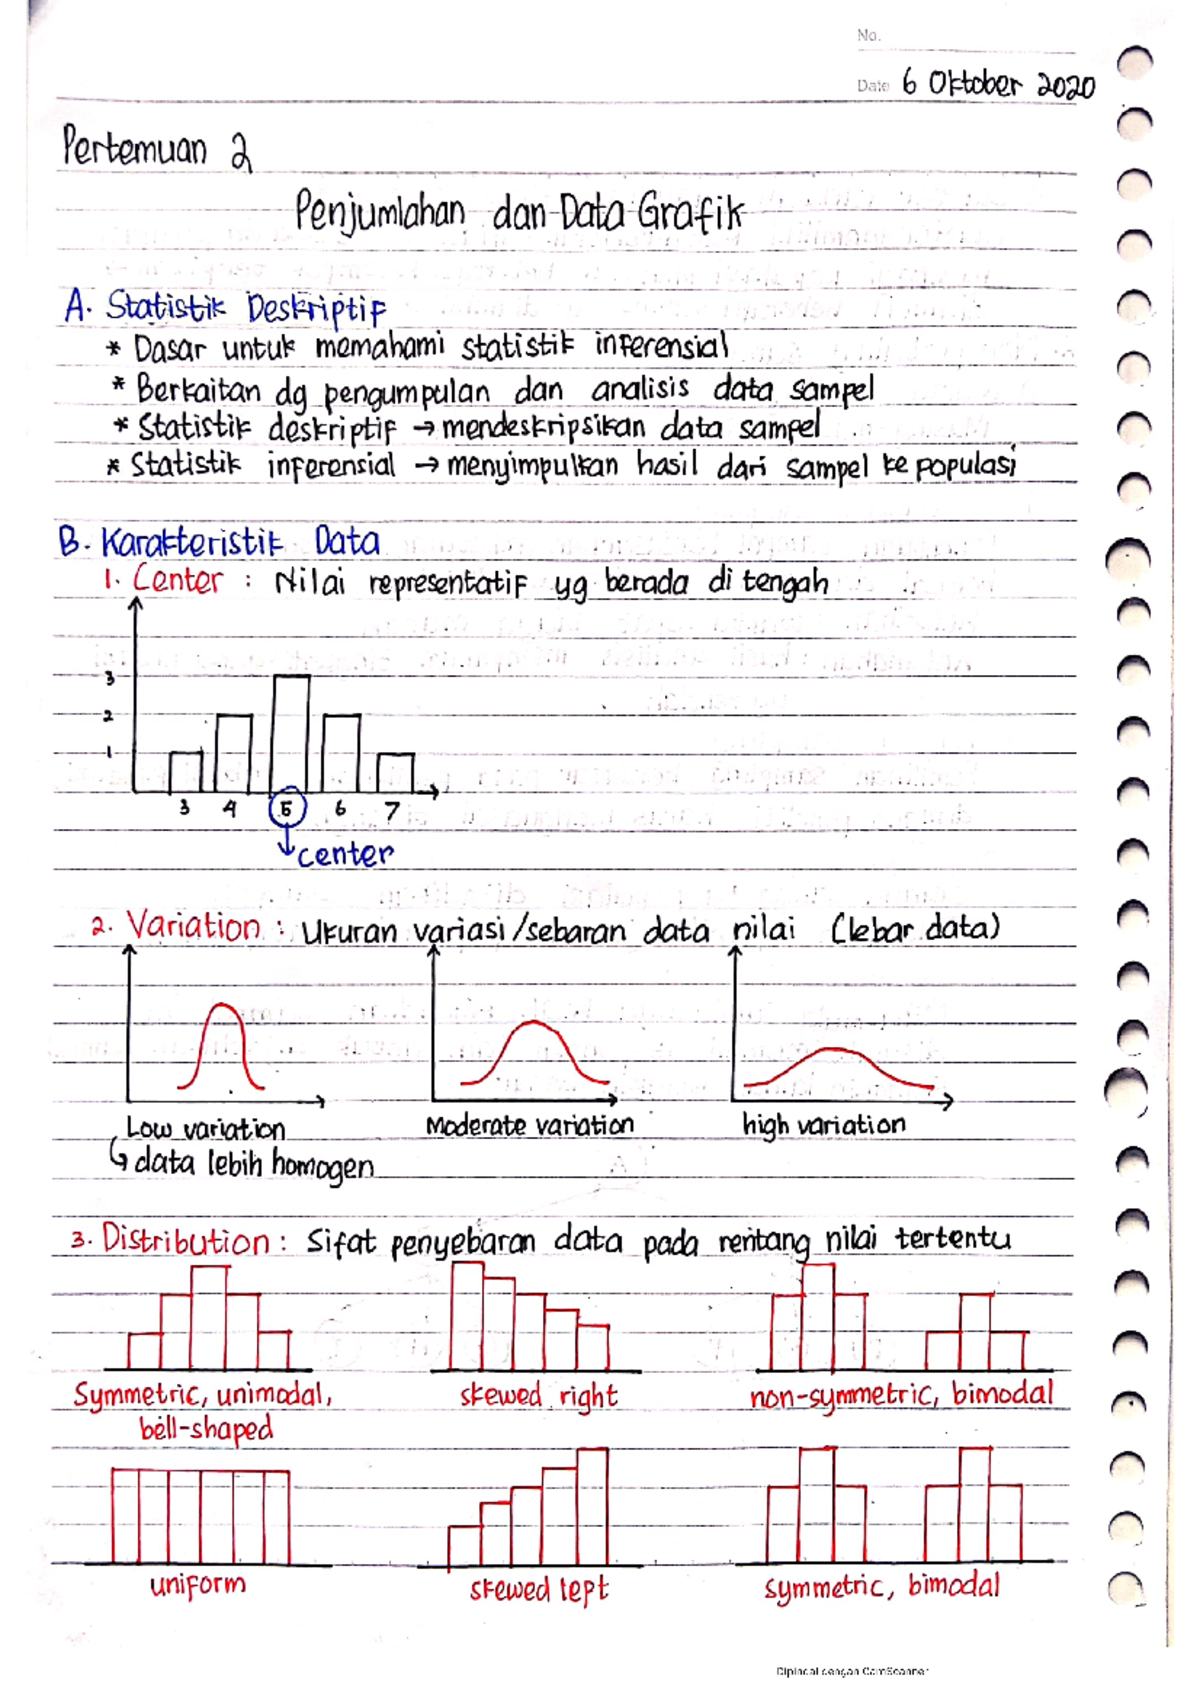 No.
Date 6 Oktober 2020
Pertemuan 2
Penjumlahan dan Data Grafik
A. Statistik Deskriptif
* Dasar untuk memahami statistik inferensial
* Berkaitan dg pengumpulan dan analisis data sampel
* Statistik deskriptif → mendeskripsikan data sampel
* Statistik inferensial → menyimpulkan hasil dari sampel ke populasi
B. Karakteristik Data
1. Center : Nilai representatif yg berada di tengah
3
2
1
3 4 5 6 7
center
2. Variation : Ukuran variasi/sebaran data nilai (lebar data)
Low variation Moderate variation high variation
↳ data lebih homogen
3. Distribution : Sifat penyebaran data pada rentang nilai tertentu
Symmetric, unimodal, skewed right non-symmetric, bimodal
bell-shaped
uniform skewed left symmetric, bimodal
Dipindai dengan CamScanner